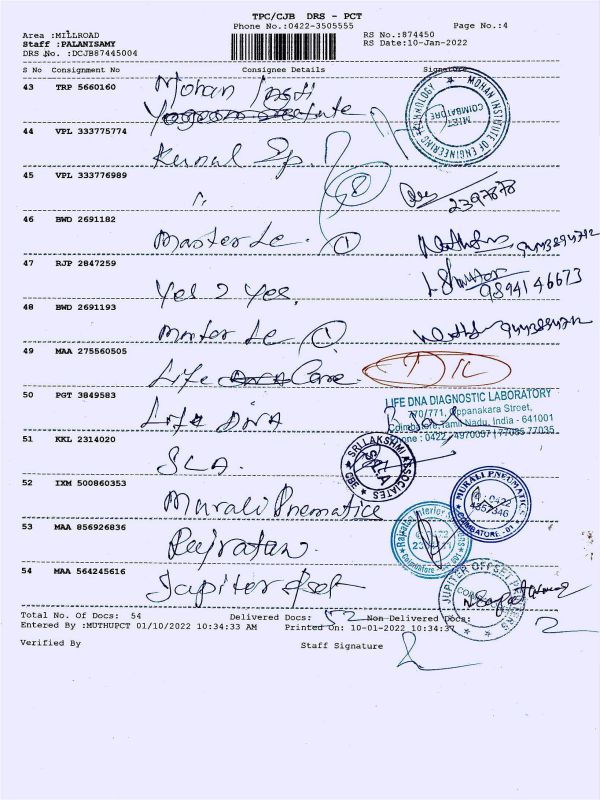 TPC/CJB DRS - PCT
Phone No.:0422-3505555 Page No.:4
Area :MILLROAD RS No.:874450
Staff :PALANISAMY RS Date:10-Jan-2022
DRS No. :DCJB87445004
S No Consignment No Consignee Details Signature
43 TRP 5660160 Mohan
MOHAN INSTITUTE OF ENGINEERING TECHNOLOGY
COIMBATORE
44 VPL 333775774 Kunal
45 VPL 333776989 " 2397878
46 BWD 2691182 Master Le. 1
47 RJP 2847259 Yes 2 Yes, 9894146673
48 BWD 2691193 Master Le 1
49 MAA 275560505 Life Care.
50 PGT 3849583 Life DNA
LIFE DNA DIAGNOSTIC LABORATORY
770/771, Oppanakara Street,
Coimbatore, Tamil Nadu, India - 641001
Phone : 0422 - 4970097 | 77085 77035
51 KKL 2314020 SLA.
SRI LAKSHMI ASSOCIATES
SALA
CBE
52 IXM 500860353 Murali Pnematice
MURALI PNEUMATICS
COIMBATORE
53 MAA 856926836 Rajratan
54 MAA 564245616 Jupiter offset
JUPITER OFFSET PRINTERS
Total No. Of Docs: 54 Delivered Docs: 52 Non Delivered Docs: 2
Entered By :MUTHUPCT 01/10/2022 10:34:33 AM Printed On: 10-01-2022 10:34:37
Verified By Staff Signature